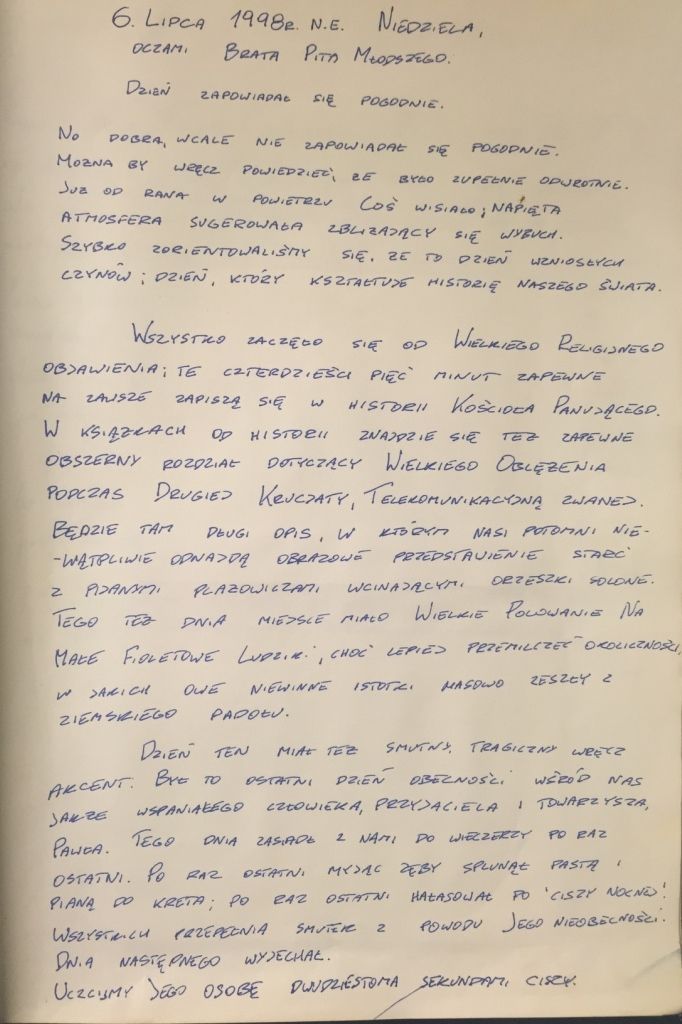 6. LIPCA 1998R. N.E. NIEDZIELA,
OCZAMI BRATA PITA MŁODSZEGO.
DZIEŃ ZAPOWIADAŁ SIĘ POGODNIE.
NO DOBRA, WCALE NIE ZAPOWIADAŁ SIĘ POGODNIE.
MOŻNA BY WRĘCZ POWIEDZIEĆ, ŻE BYŁO ZUPEŁNIE ODWROTNIE.
JUŻ OD RANA W POWIETRZU COŚ WISIAŁO; NAPIĘTA
ATMOSFERA SUGEROWAŁA ZBLIŻAJĄCY SIĘ WYBUCH.
SZYBKO ZORIENTOWALIŚMY SIĘ, ŻE TO DZIEŃ WZNIOSŁYCH
CZYNÓW; DZIEŃ, KTÓRY KSZTAŁTUJE HISTORIĘ NASZEGO ŚWIATA.
WSZYSTKO ZACZĘŁO SIĘ OD WIELKIEGO RELIGIJNEGO
OBJAWIENIA; TE CZTERDZIEŚCI PIĘĆ MINUT ZAPEWNE
NA ZAWSZE ZAPISZĄ SIĘ W HISTORII KOŚCIOŁA PANUJĄCEGO.
W KSIĄŻKACH OD HISTORII ZNAJDZIE SIĘ TEŻ ZAPEWNE
OBSZERNY ROZDZIAŁ DOTYCZĄCY WIELKIEGO OBLĘŻENIA
PODCZAS DRUGIEJ KRUCJATY, TELEKOMUNIKACYJNĄ ZWANEJ.
BĘDZIE TAM DŁUGI OPIS, W KTÓRYM NASI POTOMNI NIE-
-WĄTPLIWIE ODNAJDĄ OBRAZOWE PRZEDSTAWIENIE STARĆ
Z PIJANYMI PLAŻOWICZAMI WCINAJĄCYMI ORZESZKI SOLONE.
TEGO TEŻ DNIA MIEJSCE MIAŁO WIELKIE POLOWANIE NA
MAŁE FIOLETOWE LUDZIKI, CHOĆ LEPIEJ PRZEMILCZEĆ OKOLICZNOŚCI,
W JAKICH OWE NIEWINNE ISTOTKI MASOWO ZESZŁY Z
ZIEMSKIEGO PADOŁU.
DZIEŃ TEN MIAŁ TEŻ SMUTNY, TRAGICZNY WRĘCZ
AKCENT. BYŁ TO OSTATNI DZIEŃ OBECNOŚCI WŚRÓD NAS
JAKŻE WSPANIAŁEGO CZŁOWIEKA, PRZYJACIELA I TOWARZYSZA,
PAWŁA. TEGO DNIA ZASIADŁ Z NAMI DO WIECZERZY PO RAZ
OSTATNI. PO RAZ OSTATNI MYJĄC ZĘBY SPLUNĄŁ PASTĄ I
PIANĄ DO KRETA; PO RAZ OSTATNI HAŁASOWAŁ PO 'CISZY NOCNEJ'.
WSZYSTKICH PRZEPEŁNIA SMUTEK Z POWODU JEGO NIEOBECNOŚCI.
DNIA NASTĘPNEGO WYJECHAŁ.
UCZCIJMY JEGO OSOBĘ DWUDZIESTOMA SEKUNDAMI CISZY.